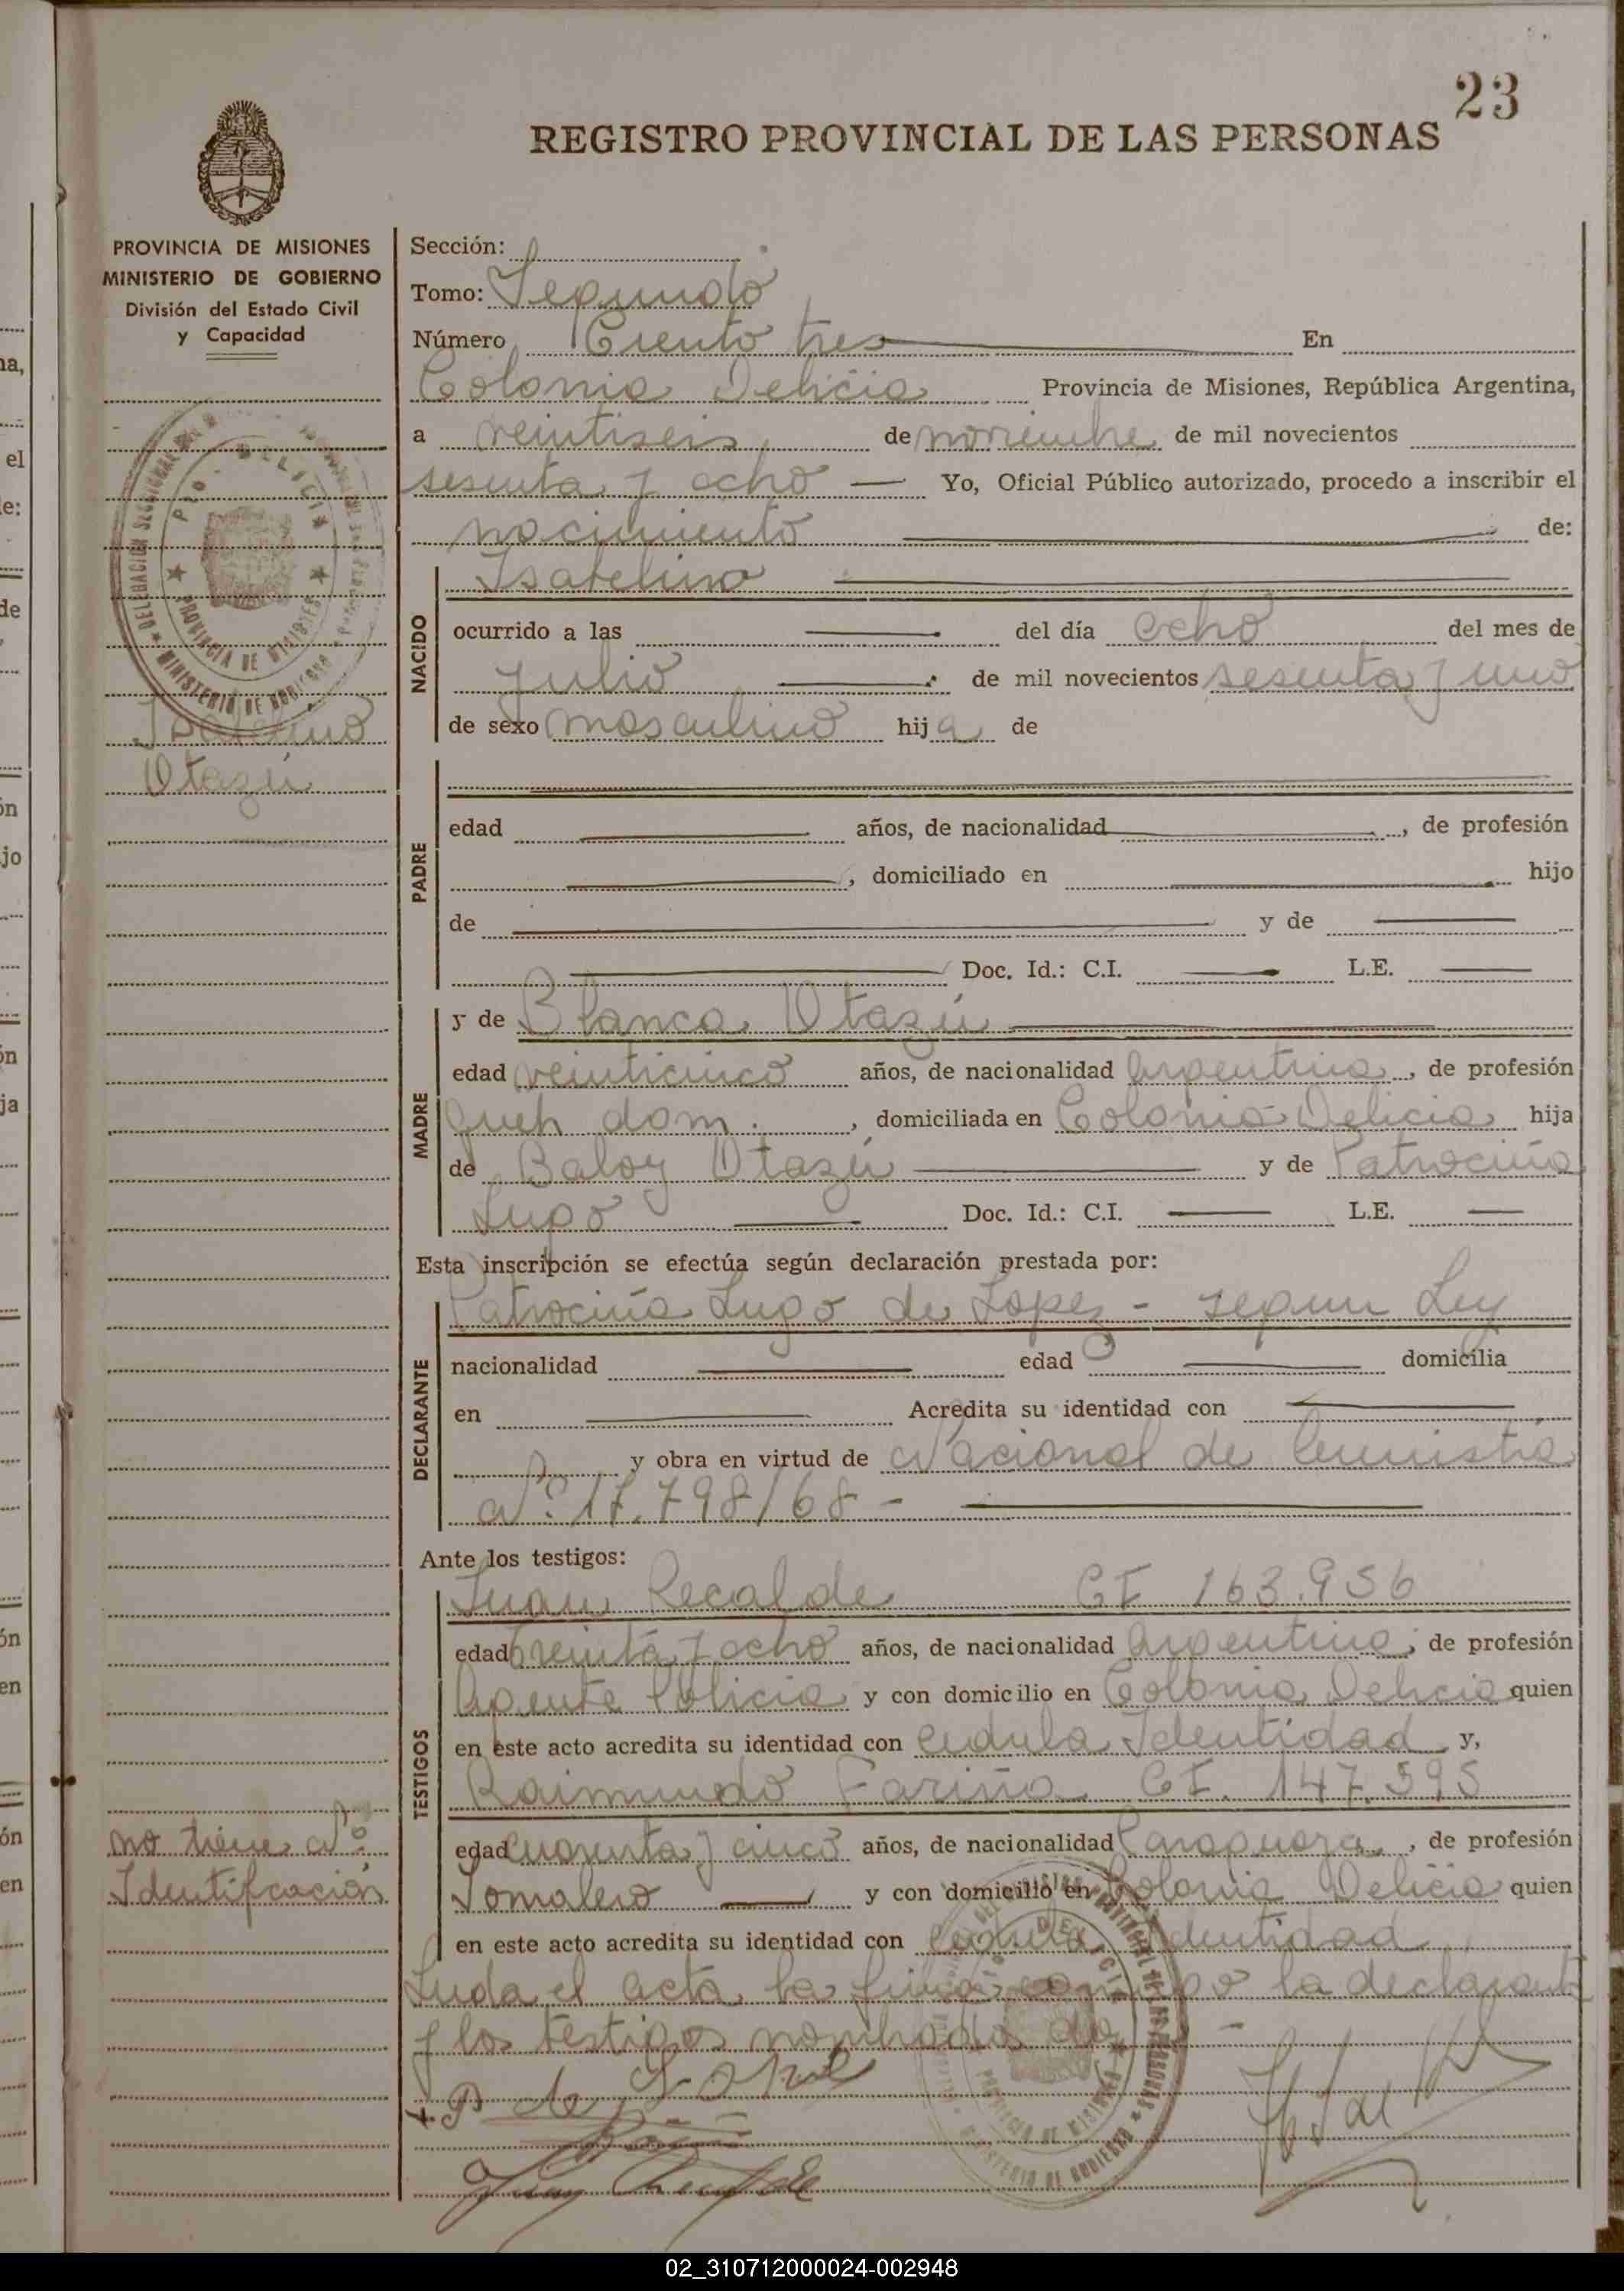 23
REGISTRO PROVINCIAL DE LAS PERSONAS
PROVINCIA DE MISIONES
MINISTERIO DE GOBIERNO
División del Estado Civil
y Capacidad
Sección:
Tomo: Segundo
Número Ciento tres En
Colonia Delicia Provincia de Misiones, República Argentina,
a veintiseis de noviembre de mil novecientos
sesenta y ocho Yo, Oficial Público autorizado, procedo a inscribir el
nacimiento de:
Isabelino
NACIDO
ocurrido a las del día ocho del mes de
Julio de mil novecientos sesenta y uno
de sexo masculino hija de
Isabelino
Otazú
PADRE
edad años, de nacionalidad , de profesión
, domiciliado en hijo
de y de
Doc. Id.: C.I. L.E.
MADRE
y de Blanca Otazú
edad veinticinco años, de nacionalidad Argentina, de profesión
queh dom. , domiciliada en Colonia Delicia hija
de Baloy Otazú y de Patrocinia
Lugo Doc. Id.: C.I. L.E.
Esta inscripción se efectúa según declaración prestada por:
DECLARANTE
Patrocinia Lugo de Lopez - segun Ley
nacionalidad edad domicilia
en Acredita su identidad con
y obra en virtud de Nacional de Amnistia
Nº 17.798/68 -
Ante los testigos:
TESTIGOS
Juan Recalde CI 163.956
edad treinta y ocho años, de nacionalidad Argentina, de profesión
Agente Policia y con domicilio en Colonia Delicia quien
en este acto acredita su identidad con Cedula Identidad y,
Raimundo Fariña CI. 147.595
edad cuarenta y cinco años, de nacionalidad Paraguaya, de profesión
Jornalero y con domicilio en Colonia Delicia quien
en este acto acredita su identidad con Cedula Identidad
no tiene Nº
Identificación
Leida el acta la firma conmigo la declarante
y los testigos nombrados
02_310712000024-002948